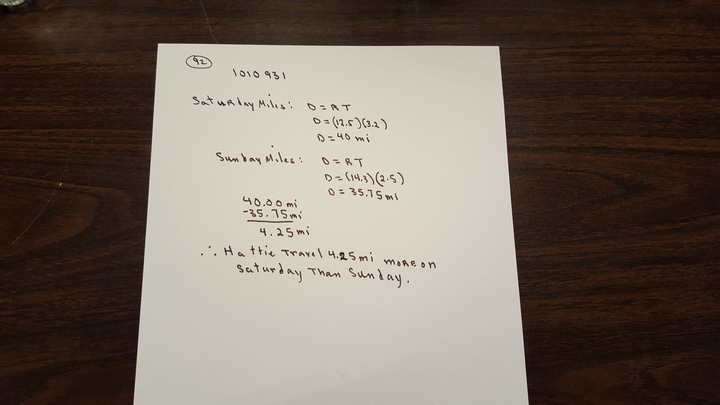 92
1010931
Saturday Miles: D = RT
D = (12.5)(3.2)
D = 40 mi
Sunday Miles: D = RT
D = (14.3)(2.5)
D = 35.75 mi
40.00 mi
-35.75 mi
4.25 mi
∴ Hattie Travel 4.25 mi more on
Saturday Than Sunday.